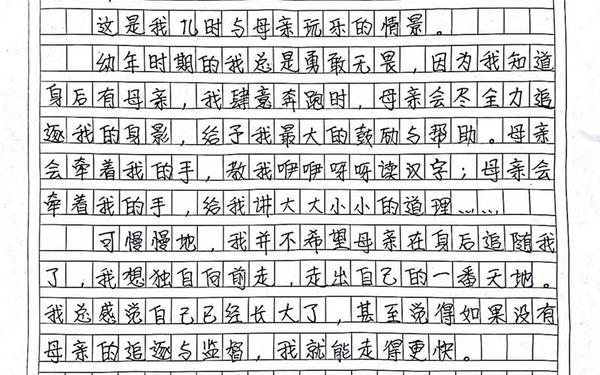 这是我儿时与母亲玩乐的情景。
幼年时期的我总是勇敢无畏，因为我知道
身后有母亲，我肆意奔跑时，母亲会尽全力追
逐我的身影，给予我最大的鼓励与帮助。母亲
会牵着我的手，教我咿咿呀呀读汉字；母亲会
牵着我的手，给我讲大大小小的道理……
可慢慢地，我并不希望母亲在身后追随我
了，我想独自向前走，走出自己的一番天地。
我总感觉自己已经长大了，甚至觉得如果没有
母亲的追逐与监督，我就能走得更快。